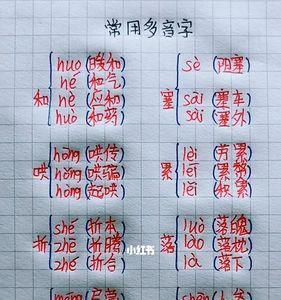 常用多音字
和
huo (暖和)
hé (和气)
hè (应和)
huò (和药)
塞
sè (阻塞)
sāi (塞车)
sài (塞外)
哄
hōng (哄传)
hǒng (哄骗)
hòng (起哄)
累
lèi (劳累)
léi (累赘)
lěi (积累)
折
shé (折本)
zhē (折腾)
zhé (折合)
落
luò (落魄)
lào (落枕)
là (落下)
小红书